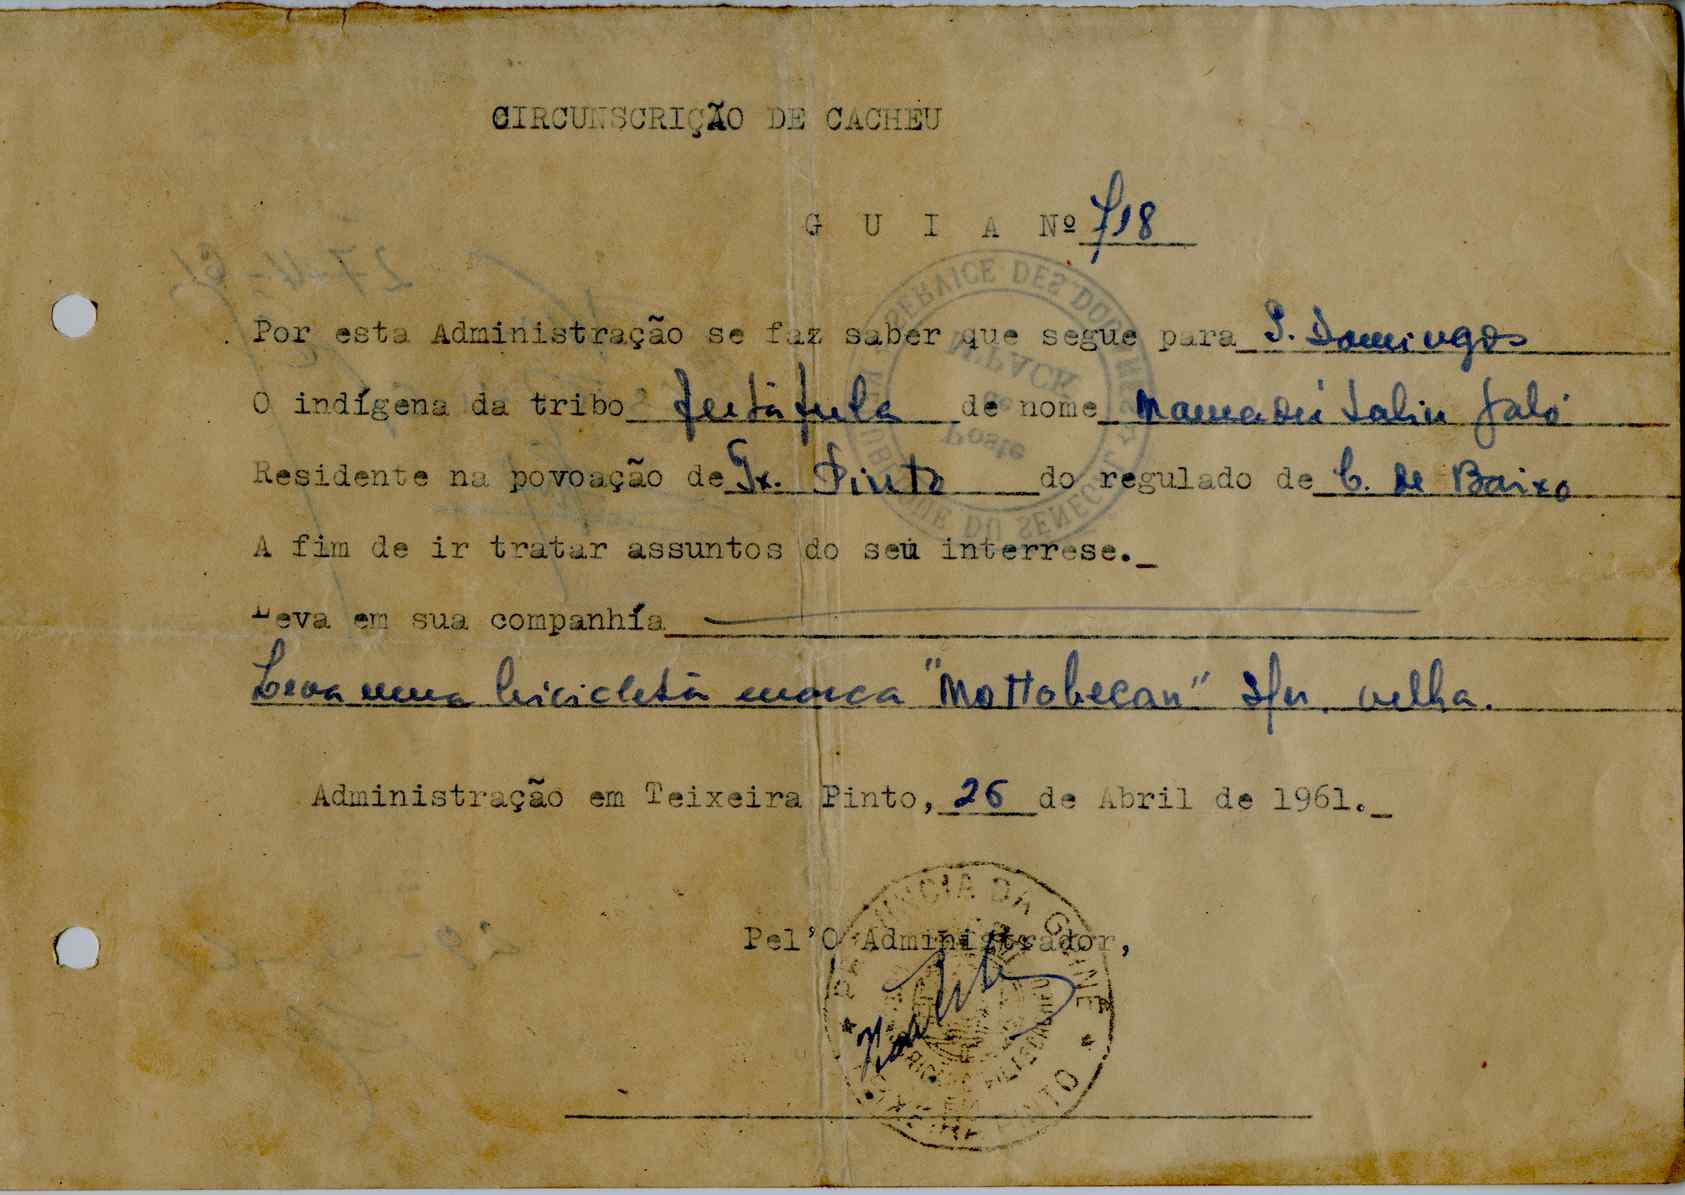 CIRCUNSCRIÇÃO DE CACHEU
G U I A Nº 718
Por esta Administração se faz saber que segue para S. Domingos
O indígena da tribo futáfula de nome Mamadú Saliu Jaló
Residente na povoação de Tx. Pinto do regulado de C. de Baixo
A fim de ir tratar assuntos do seu interrese._
Leva em sua companhía
Leva uma bicicleta marca "Mottobecan" velha.
Administração em Teixeira Pinto, 26 de Abril de 1961._
Pel'O Administrador,
PROVINCIA DA GUINÉ
TEIXEIRA PINTO
SERVICE DES DOUANES
REPUBLIQUE DU SENEGAL
Poste de
27-4-61